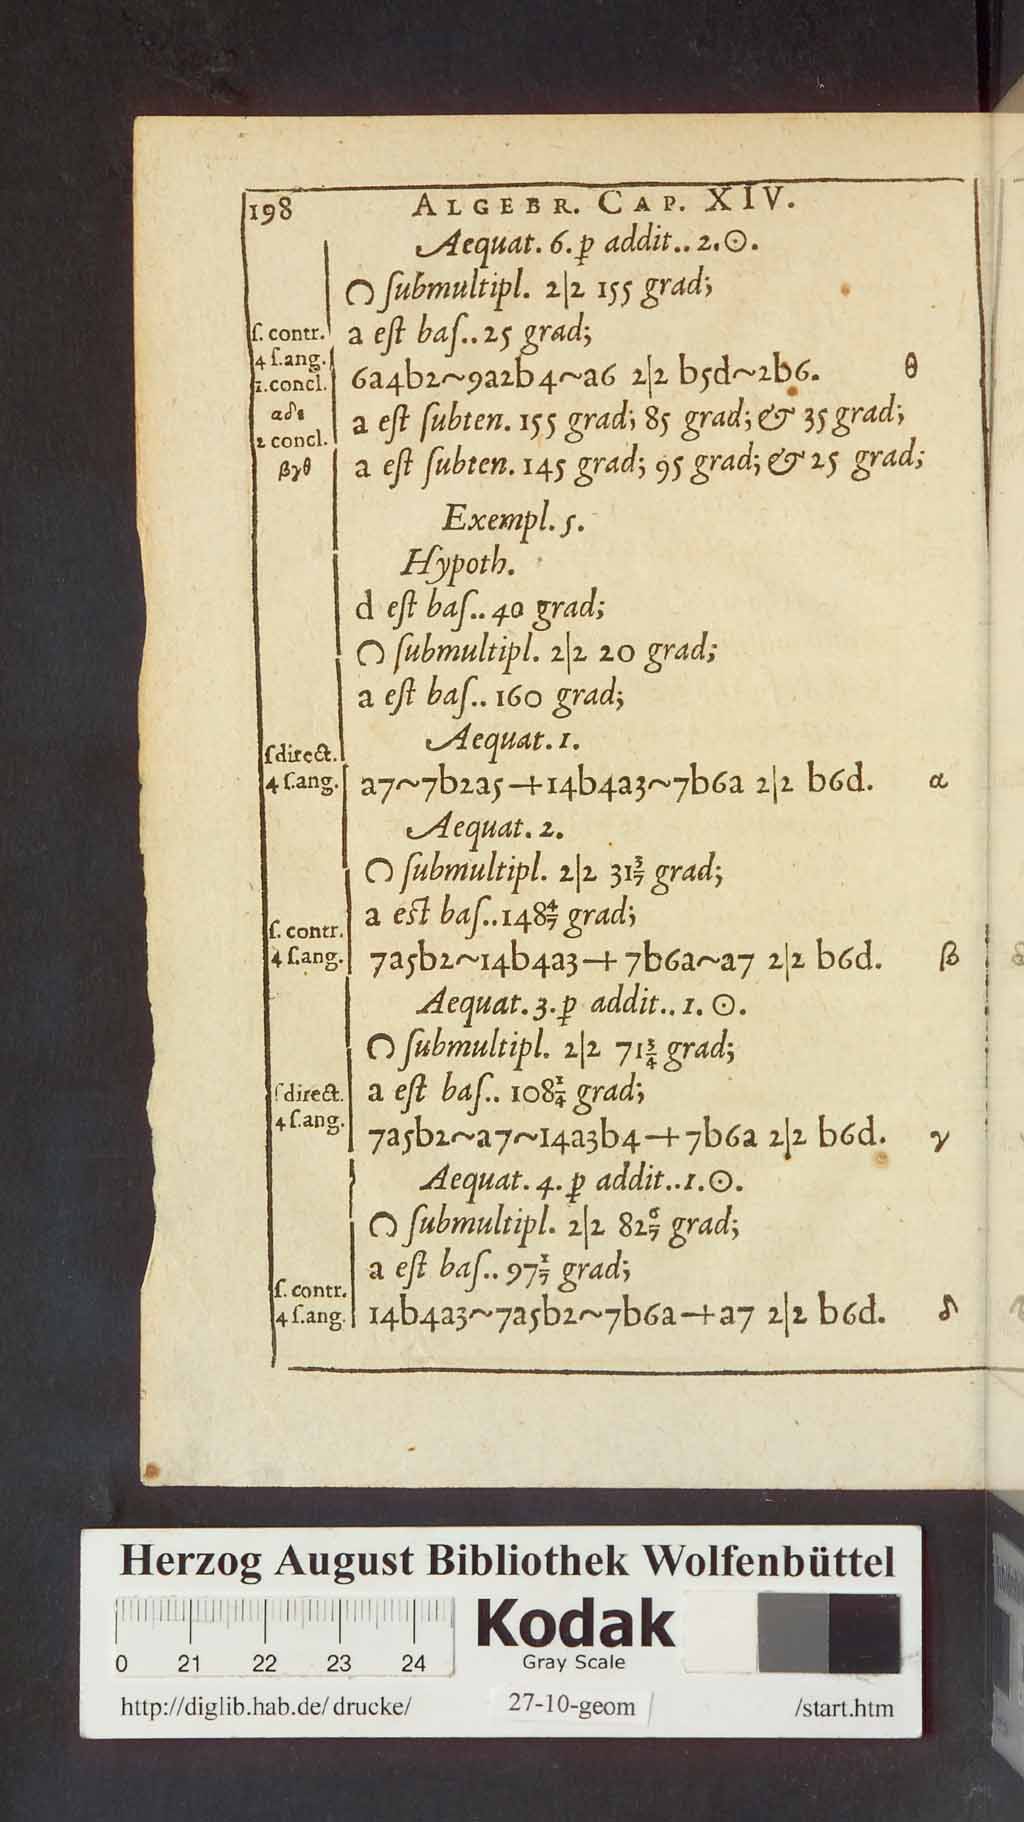 198 ALGEBR. CAP. XIV.
Aequat. 6. p addit.. 2. ☉.
ſubmultipl. 2|2 155 grad;
ſ. contr. a eſt baſ.. 25 grad;
4 ſ.ang.
1.concl. 6a4b2~9a2b4~a6 2|2 b5d~2b6. θ
αδε a eſt ſubten. 155 grad; 85 grad; & 35 grad;
2 concl.
βγθ a eſt ſubten. 145 grad; 95 grad; & 25 grad;
Exempl. 5.
Hypoth.
d eſt baſ.. 40 grad;
ſubmultipl. 2|2 20 grad;
a eſt baſ.. 160 grad;
Aequat. 1.
ſdirect.
4 ſ.ang. a7~7b2a5+14b4a3~7b6a 2|2 b6d. α
Aequat. 2.
ſubmultipl. 2|2 31 3/7 grad;
a est baſ.. 148 4/7 grad;
ſ. contr.
4 ſ.ang. 7a5b2~14b4a3+7b6a~a7 2|2 b6d. β
Aequat. 3. p addit.. 1. ☉.
ſubmultipl. 2|2 71 3/4 grad;
ſdirect. a eſt baſ.. 108 1/4 grad;
4 ſ.ang. 7a5b2~a7~14a3b4+7b6a 2|2 b6d. γ
Aequat. 4. p addit.. 1. ☉.
ſubmultipl. 2|2 82 6/7 grad;
a eſt baſ.. 97 1/7 grad;
ſ. contr.
4 ſ.ang. 14b4a3~7a5b2~7b6a+a7 2|2 b6d. δ
Herzog August Bibliothek Wolfenbüttel
Kodak
Gray Scale
0 21 22 23 24
http://diglib.hab.de/drucke/ 27-10-geom /start.htm